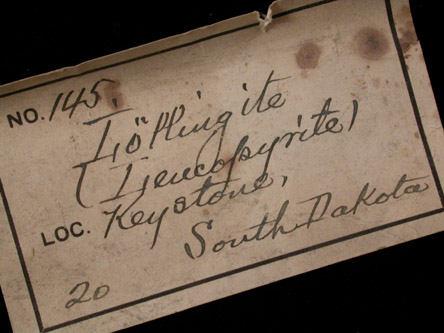 NO. 145.
Löllingite
(Leucopyrite)
LOC. Keystone,
South Dakota
20